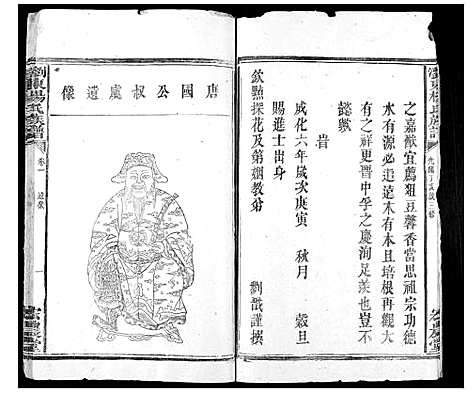 之嘉猷宜薦俎豆馨香當思祖宗功德
水有源必追遠木有本且培根再觀大
有之祥更晋中孚之慶洵足羨也豈不
懿歟
旹
成化六年歲次庚寅 秋月 榖旦
賜進士出身
欽點探花及第姻教弟 劉戩謹撰
唐國公叔虞遺像
瀏東楊氏族譜
卷一 遺像 一